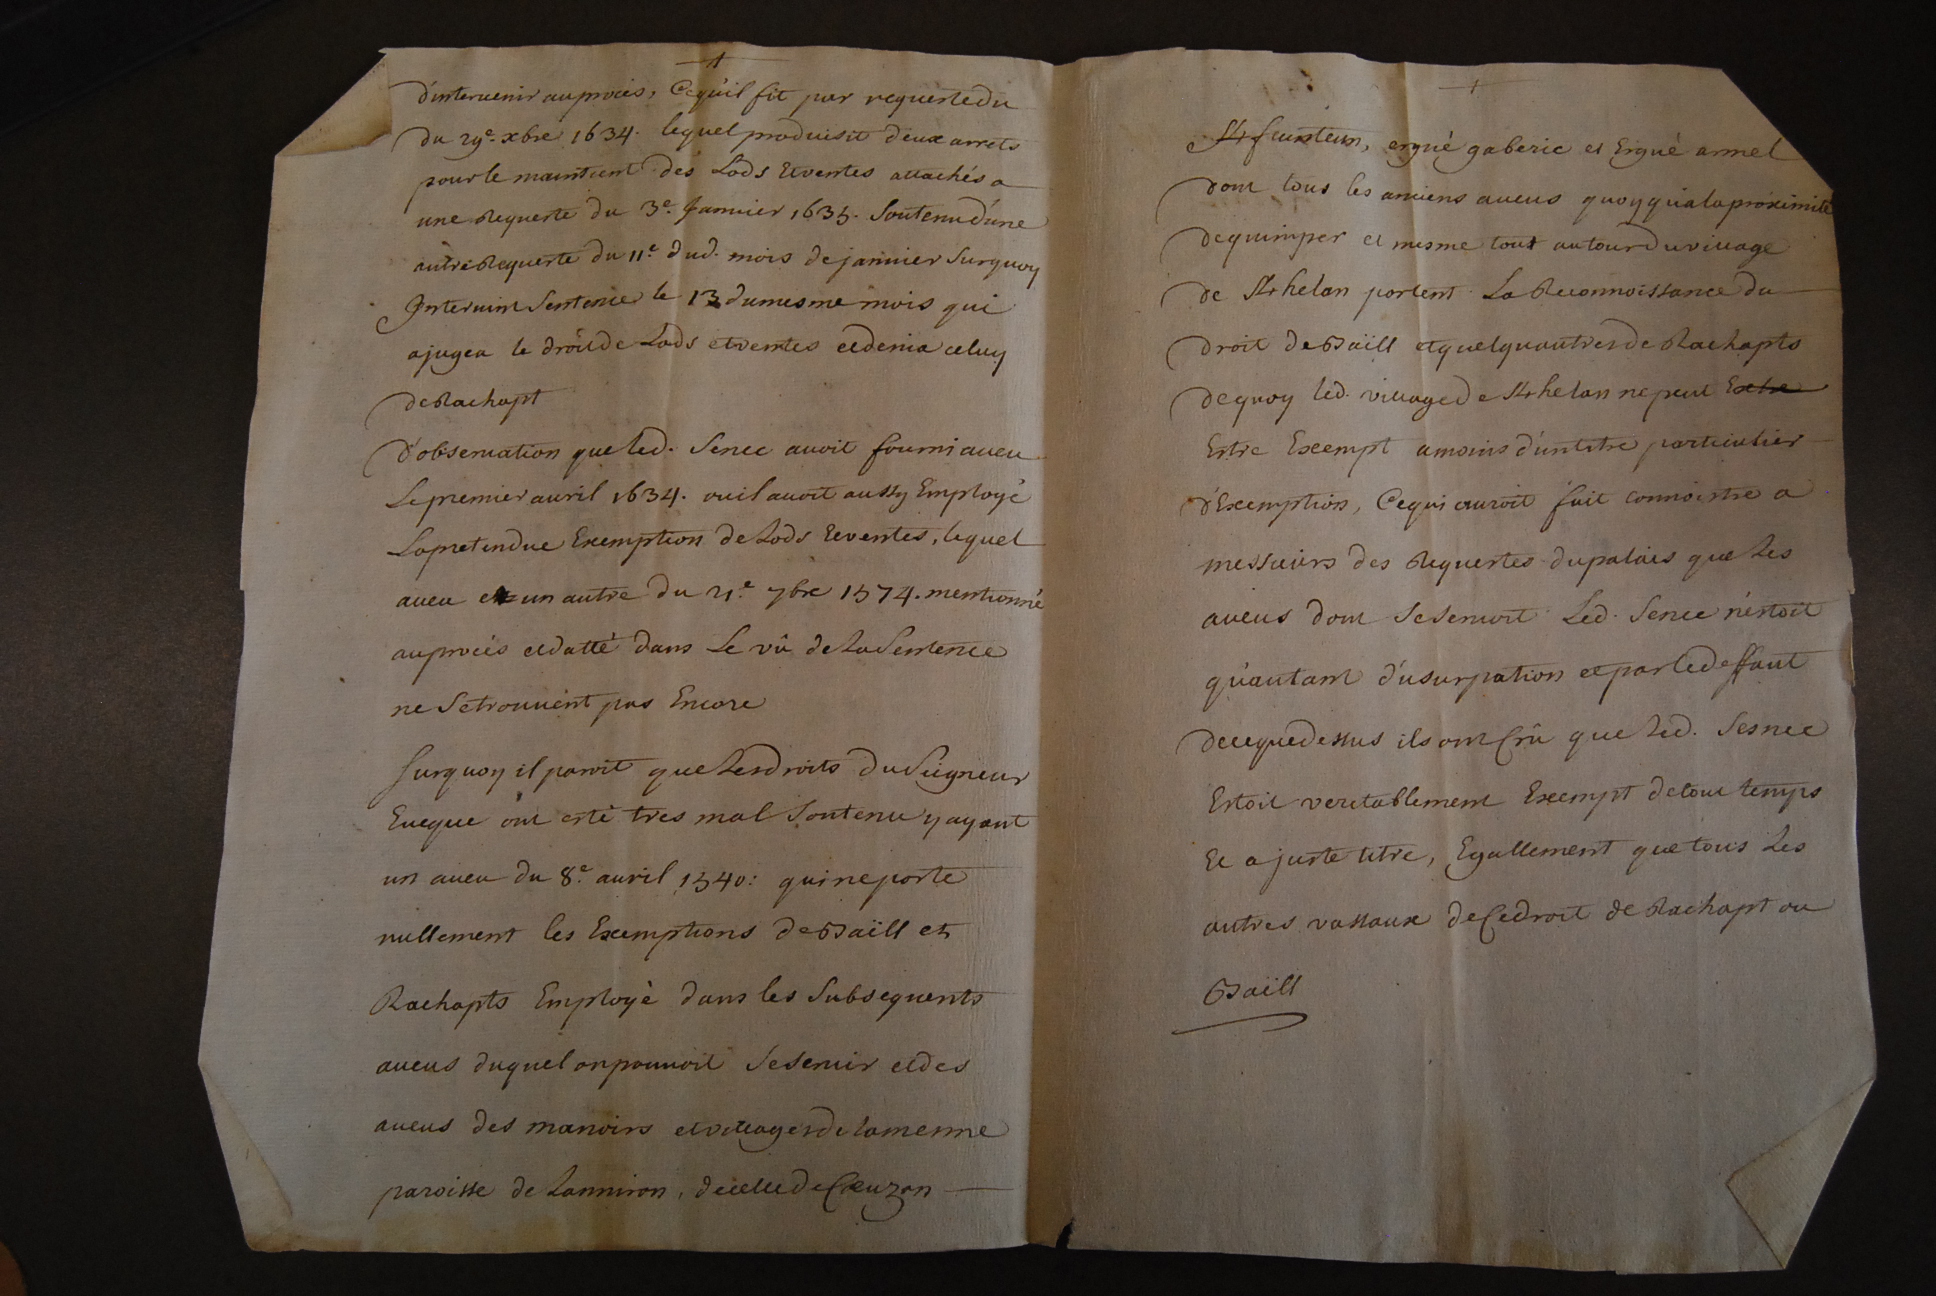 d'intervenir au procès, Ce qu'il fit par requeste du
du 29e. xbre 1634. lequel produisit deux arrets
pour le maintient des Lods et ventes attachés a
une Requeste du 3e. Janvier 1635. Soutenu d'une
autre Requeste du 11e dud. mois de janvier Surquoy
Intervint Sentence le 13 du mesme mois qui
ajugea le droit de Lods et ventes et denia celuy
de Rachapt
d'observation que led. Senec avoit fourni aveu
Le premier avril 1634. ou il avoit aussy Employé
La pretendue Exemption de Lods Et ventes, lequel
aveu et un autre du 21e 7bre 1574. mentionné
au procés et datté dans Le vû de La Sentence
ne Se trouvent pas Encore
Surquoy il paroit que Les droits du Seigneur
Eveque ont esté tres mal Soutenu y ayant
un aveu du 8e. avril 1540: qui ne porte
nullement les Exemptions de Baill et
Rachapts Employé dans les Subsequents
aveus duquel on pouvoit Se Servir et des
aveus des manoirs et villages de la mesme
paroisse de Lanniron, de celle de Creuzon
Kfeunteun, ergué gaberic et Ergué armel
dont tous les anciens aveus quoy qu'a la proximité
de quimper et mesme tout autour du village
de Khelan portent La Reconnoissance du
droit de Baill et quelqu'autres de Rachapts
de quoy led. village de Khelan ne peut Estre
Estre Exempt a moins d'un titre particulier
d'Exemption, Ce qui auroit fait connoistre a
messieurs des Requestes du palais que Les
aveus dont Se Servoit Led. Senec n'estoit
qu'autant d'usurpation et par le deffaut
de ce que dessus ils ont Crû que Led. Sesnec
Estoit veritablement Exempt de tout temps
Et a juste titre, Egallement que tous Les
autres vassaux de Ce droit de Rachapt ou
Baill